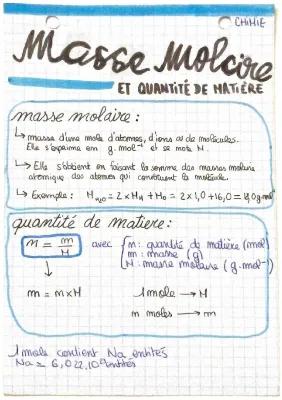 CHIMIE
Masse Molaire
ET QUANTITÉ DE MATIÈRE
masse molaire :
↳ masse d'une mole d'atomes, d'ions ou de molécules.
Elle s'exprime en g.mol⁻¹ et se note M.
↳ Elle s'obtient en faisant la somme des masses molaires
atomique des atomes qui constituent la molécule.
↳ Exemple : M H₂O = 2 × MH + MO = 2 × 1,0 + 16,0 = 18,0 g.mol⁻¹
quantité de matiere :
n = m/M avec { n : quantité de matière (mol)
m : masse (g)
M : masse molaire (g.mol⁻¹)
↓
m = n × M 1 mole → M
n moles → m
1 mole contient Na entités
Na = 6,022.10²³ entités